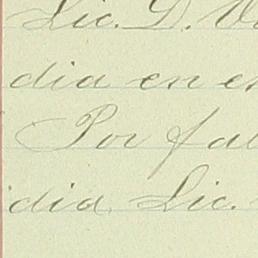 Lic. D. V
dia en e
Por fal
dia, Lic.